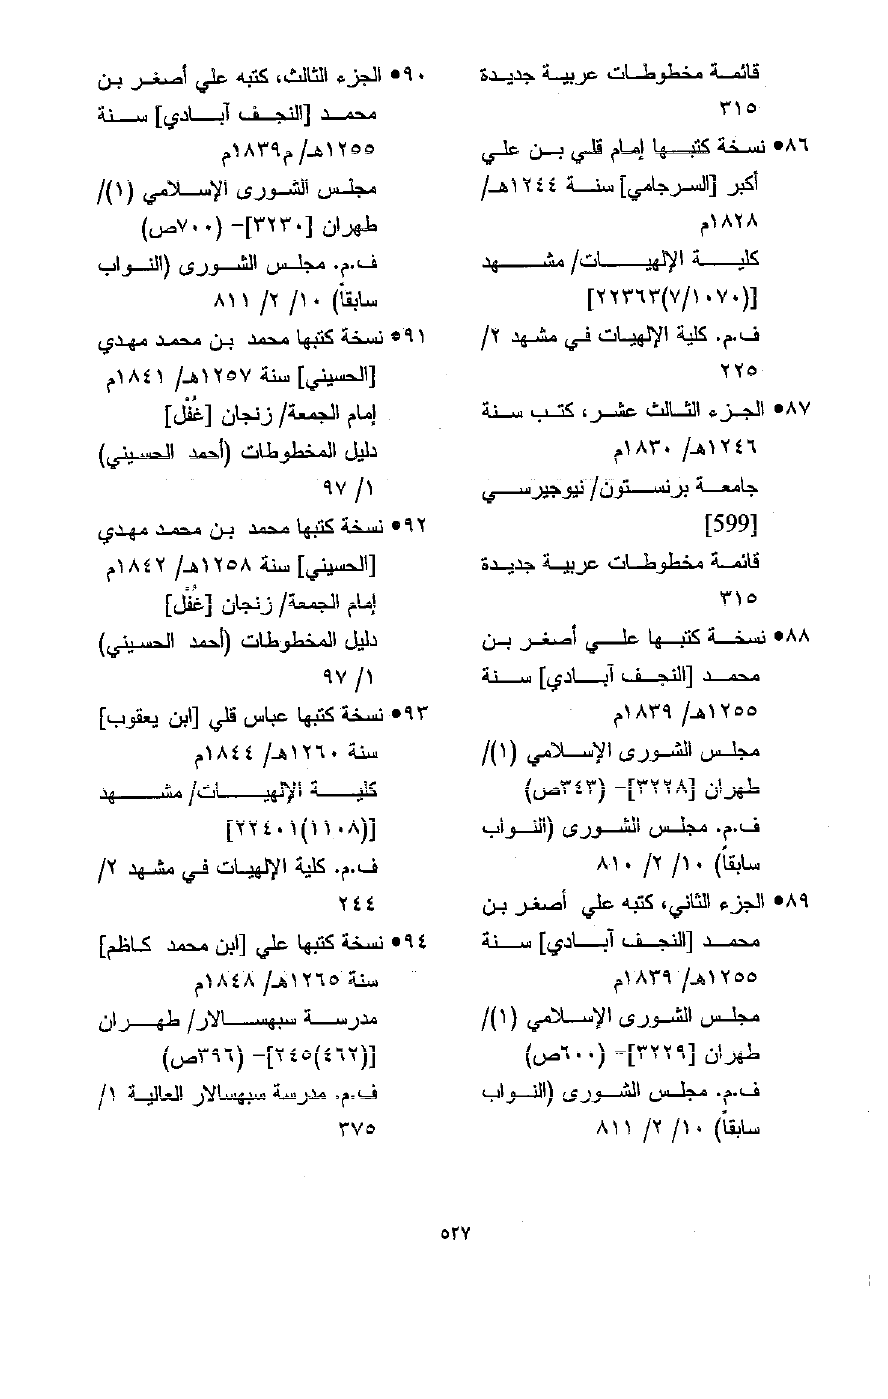 قائمة مخطوطات عربية جديدة
٣١٥
٨٦• نسخة كتبها إمام قلي بن علي
أكبر [السرجامي] سنة ١٢٤٤هـ/
١٨٢٨م
كلية الإلهيات/ مشهد
[(٧/١٠٧٠)٢٢٣٦٣]
ف.م. كلية الإلهيات في مشهد ٢/
٢٢٥
٨٧• الجزء الثالث عشر، كتب سنة
١٢٤٦هـ/ ١٨٣٠م
جامعة برنستون/ نيوجيرسي
[599]
قائمة مخطوطات عربية جديدة
٣١٥
٨٨• نسخة كتبها علي أصغر بن
محمد [النجف آبادي] سنة
١٢٥٥هـ/ ١٨٣٩م
مجلس الشورى الإسلامي (١)/
طهران [٣٢٢٨]- (٣٤٣ص)
ف.م. مجلس الشورى (النواب
سابقاً) ١٠/ ٢/ ٨١٠
٨٩• الجزء الثاني، كتبه علي أصغر بن
محمد [النجف آبادي] سنة
١٢٥٥هـ/ ١٨٣٩م
مجلس الشورى الإسلامي (١)/
طهران [٣٢٢٩]- (٦٠٠ص)
ف.م. مجلس الشورى (النواب
سابقاً) ١٠/ ٢/ ٨١١
٩٠• الجزء الثالث، كتبه علي أصغر بن
محمد [النجف آبادي] سنة
١٢٥٥هـ/ م١٨٣٩م
مجلس الشورى الإسلامي (١)/
طهران [٣٢٣٠]- (٧٠٠ص)
ف.م. مجلس الشورى (النواب
سابقاً) ١٠/ ٢/ ٨١١
٩١• نسخة كتبها محمد بن محمد مهدي
[الحسيني] سنة ١٢٥٧هـ/ ١٨٤١م
إمام الجمعة/ زنجان [غُفْل]
دليل المخطوطات (أحمد الحسيني)
١/ ٩٧
٩٢• نسخة كتبها محمد بن محمد مهدي
[الحسيني] سنة ١٢٥٨هـ/ ١٨٤٢م
إمام الجمعة/ زنجان [غُفْل]
دليل المخطوطات (أحمد الحسيني)
١/ ٩٧
٩٣• نسخة كتبها عباس قلي [ابن يعقوب]
سنة ١٢٦٠هـ/ ١٨٤٤م
كلية الإلهيات/ مشهد
[(١١٠٨)٢٢٤٠١]
ف.م. كلية الإلهيات في مشهد ٢/
٢٤٤
٩٤• نسخة كتبها علي [ابن محمد كاظم]
سنة ١٢٦٥هـ/ ١٨٤٨م
مدرسة سبهسالار/ طهران
[(٤٦٢)٢٤٥]- (٣٩٦ص)
ف.م. مدرسة سبهسالار العالية ١/
٣٧٥
٥٢٧